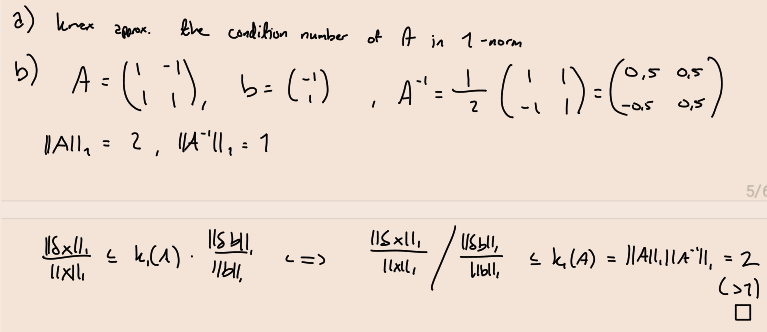 a) knex approx. the condition number of A in 1-norm
b) A = (1 -1; 1 1), b = (-1; 1), A⁻¹ = 1/2 (1 1; -1 1) = (0,5 0,5; -0.5 0,5)
||A||₁ = 2, ||A⁻¹||₁ = 1
5/6
||δx||₁/||x||₁ ≤ k₁(A) · ||δb||₁/||b||₁ <=> ||δx||₁/||x||₁ / ||δb||₁/||b||₁ ≤ k₁(A) = ||A||₁ ||A⁻¹||₁ = 2
(>1)
□